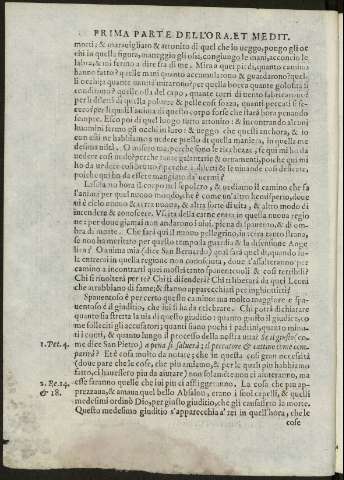 PRIMA PARTE DELL'ORA. ET MEDIT.
morti; & marauigliato & attonito di quel che io ueggo, porgo gli oc
chi in questa figura, maneggio gli ossi, congiungo le mani, acconcio le
labra, & mi fermo a dire fra di me. Mira quei piedi, quanto camino
hanno fatto? quelle mani quanto accumularono & guardarono? quel-
li occhi quante uanità mirarono? per quella bocca quante golosità si
condirono? quelle ossa del capo, quante torri di uento fabricarono?
per li diletti di questa poluere & pelle così sozza, quanti peccati si fe-
cero? per li quali l'anima di questo corpo forse che starà hora penando
sempre. Esco poi di quel luogo tutto attonito: & incontrando alcuni
huomini fermo gli occhi in loro: & ueggo che quelli anchora, & io
con essi ne habbiamo a uedere presto di quella maniera, in quella me
desima uiltà. O misero me, perche sono le ricchezze, se quì mi ho da
uedere così nudo? perche tante galantarie & ornamenti, poi che quì mi
ho da uedere così brutto? perche i diletti & le uiuande così delicate,
poi che quì ho da essere mangiato da uermi?
Lascia mo hora il corpo nel sepolcro, & uediamo il camino che fa
l'anima per quel nuouo mondo, che è come un'altro hemisperio, doue
ui è cielo nuouo & terra nuoua, & altra sorte di uita, & altro modo di
intendere & conoscere. Vscita della carne entra in questa nuoua regio
ne: per doue giamai non andarono i uiui, piena di spauento, & di om-
bra di morte. Che farà quì il nuouo pellegrino, in terra tanto strana,
se non ha meritato per questo tempo la guardia & la difensione Ange
lica? O anima mia (dice San Bernardo) qual sarà quel dì, quando so-
la entrerai in quella regione non conosciuta, doue t'assalteranno per
camino a incontrarti quei mostri tanto spauenteuoli & così terribili?
Chi si risolterà per te? Chi ti difenderà? Chi ti liberarà da quei Leoni
che arrabbiano di fame; & stanno apparecchiati per inghiottirti?
Spauentoso è per certo questo camino: ma molto maggiore e spa-
uentoso è il giudicio, che iui si ha da celebrare. Chi potrà dichiarare
quanto sia stretta la uia di questo giudicio: quanto giusto il giudice, co
me solleciti gli accusatori; quanti siano pochi i padrini, quanto minu-
ti i conti, & quanto lungo il processo della nostra uita? Se il giusto (co-
1. Pet. 4. me dice San Pietro) a pena si saluerà: il peccatore & cattiuo come com-
parirà? Et è cosa molto da notare; che in questa così gran necessità
(doue pare che le cose, che più amiamo, & per le quali più habbiamo
fatto, ci hauessero più da aiutare) non solamente non ci aiuteranno, ma
2. Re. 14. esse saranno quelle che iui più ci affliggeranno. La cosa che più ap-
& 18. prezzaua, & amaua quel bello Absalon, erano i suoi capelli, & quelli
medesimi ordinò Dio, per giusto giudicio, che gli causassero la morte.
Questo medesimo giudicio s'apparecchia a' rei in quell'hora, che le
cose